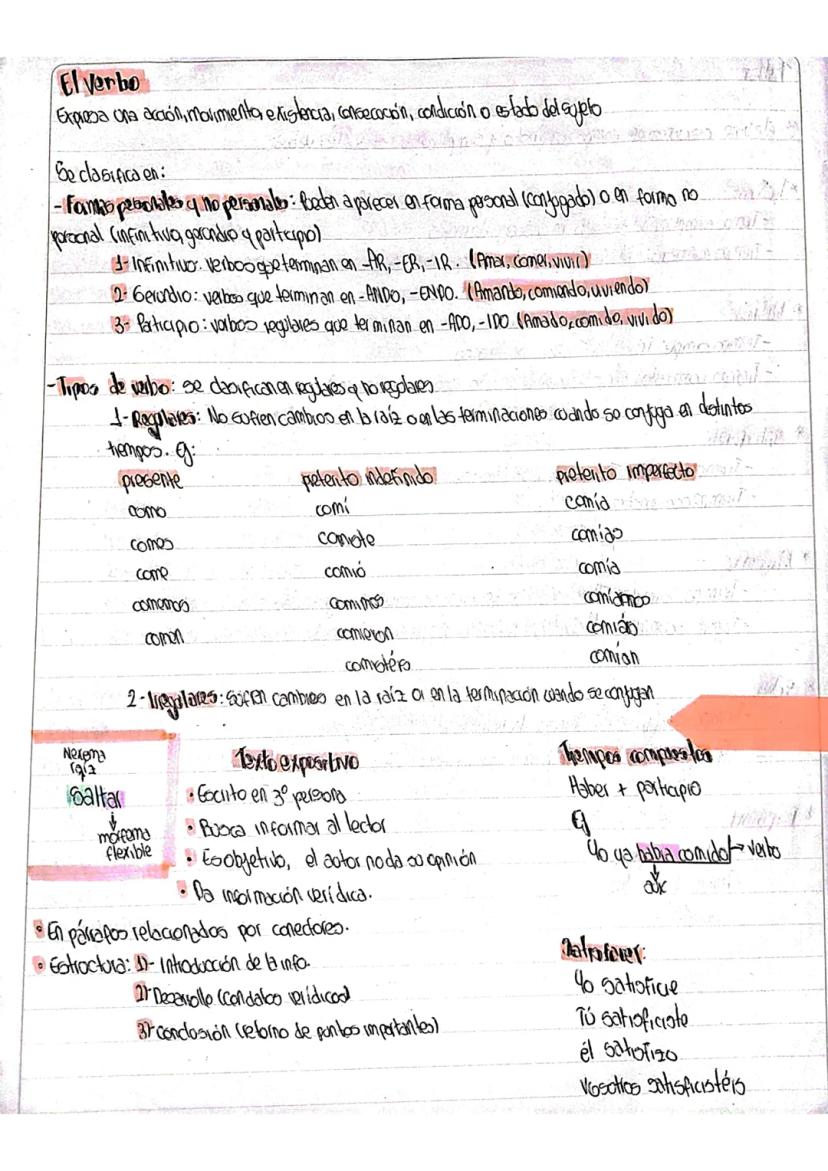 El verbo
Expresa una acción, movimiento, existencia, consecución, condición o estado del sujeto
Se clasifica en:
- Formas personales y no personales: Pueden aparecer en forma personal (conjugado) o en forma no
personal (infinitivo, gerundio y participio)
1- Infinitivo: verbos que terminan en -AR, -ER, -IR. (Amar, comer, vivir)
2- Gerundio: verbos que terminan en -ANDO, -ENDO. (Amando, comiendo, viviendo)
3- Participio: verbos regulares que terminan en -ADO, -IDO (Amado, comido, vivido)
- Tipos de verbo: se clasifican en regulares y no regulares
1- Regulares: No sufren cambios en la raíz o en las terminaciones cuando se conjuga en distintos
tiempos. Ej:
presente pretérito indefinido pretérito imperfecto
como comí comía
comes comiste comías
come comió comía
comemos comimos comíamos
comen comieron comíais
comistéis comían
2- Irregulares: Sufren cambios en la raíz o en la terminación cuando se conjugan
Nexema
raíz
Saltar
morfema
flexible
Texto expositivo
• Escrito en 3º persona
• Busca informar al lector
• Es objetivo, el autor no da su opinión
• Da información verídica.
• En párrafos relacionados por conectores.
• Estructura: 1)- Introducción de la info.
2)- Desarrollo (con datos verídicos)
3)- conclusión (retorno de puntos importantes)
Tiempos compuestos
Haber + participio
Ej
Yo ya había comido → verbo
aux
Satisfacer:
Yo satisficie
Tú satisficiste
él satisfizo
Vosotros satisficistéis